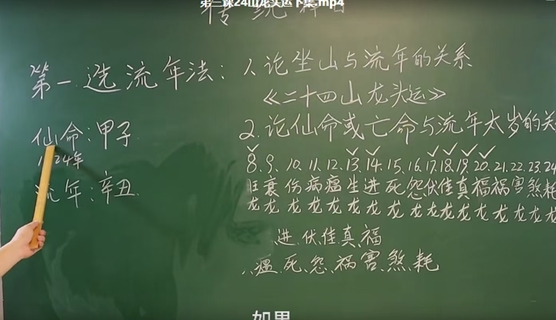 第三课24山龙头运下集.mp4
传统择日
第一选流年法:
1.论坐山与流年的关系
《二十四山龙头运》
仙命:甲子
1924年
流年:辛丑
2.论仙命或亡命与流年太岁的关
8.9.10.11.12.13.14.15.16.17.18.19.20.21.22.23.24
旺衰伤病瘟生进死怨伏佳真福祸害煞耗
龙龙龙龙龙龙龙龙龙龙龙龙龙龙龙龙龙
进伏佳真福
瘟、死、怨、祸、害、煞、耗
如果